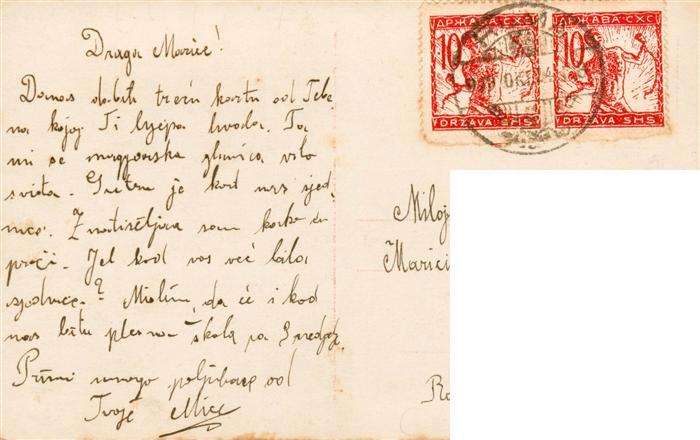 Draga Marice!
Danas dobih treću kartu od Tebe
na kojoj Ti lijepa hvala. Ta
mi se glavica vrlo
sviđa. Sutra je kod nas sjed-
nica. Znatiželjna sam kako će
proći. Jel kod vas već bila
sjednica? Mislim, da će i kod
nas biti plesna škola za
Primi mnogo poljubaca od
Tvoje Mice
ДРЖАВА СХС
10
DRŽAVA SHS
ДРЖАВА СХС
10
DRŽAVA SHS
Miloj
Marici